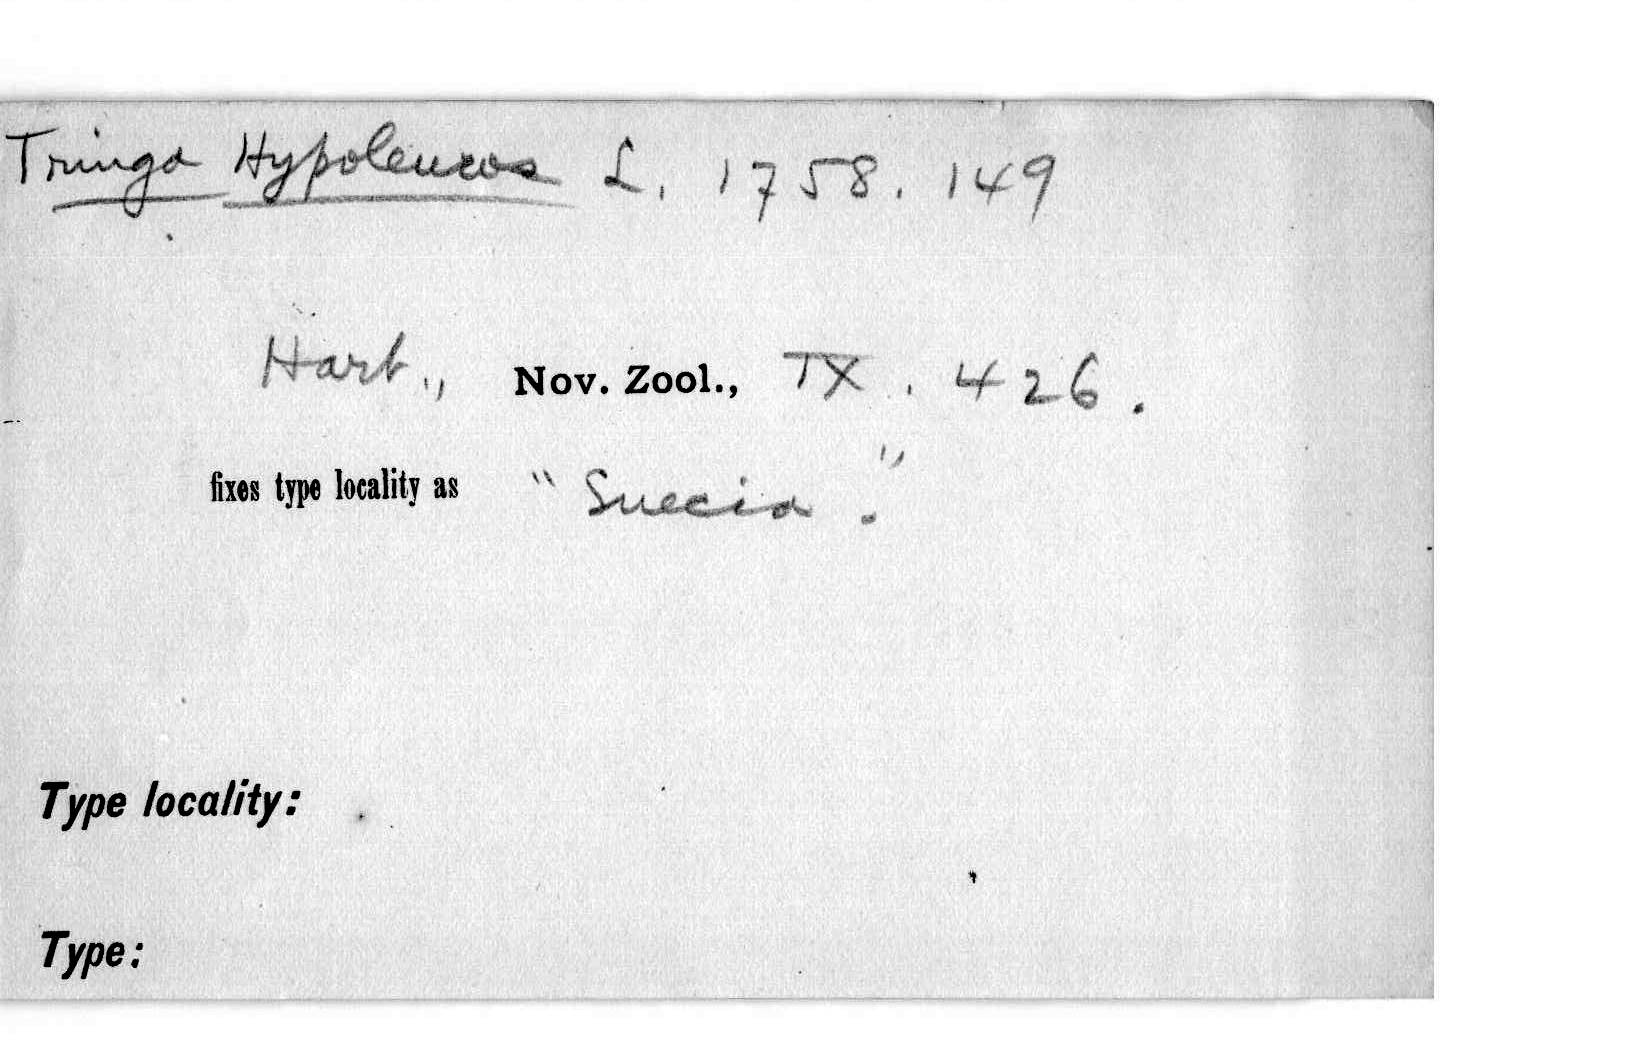 Tringa Hypoleucos L. 1758. 149
Hart., Nov. Zool., IX. 426.
fixes type locality as "Suecia."
Type locality:
Type: